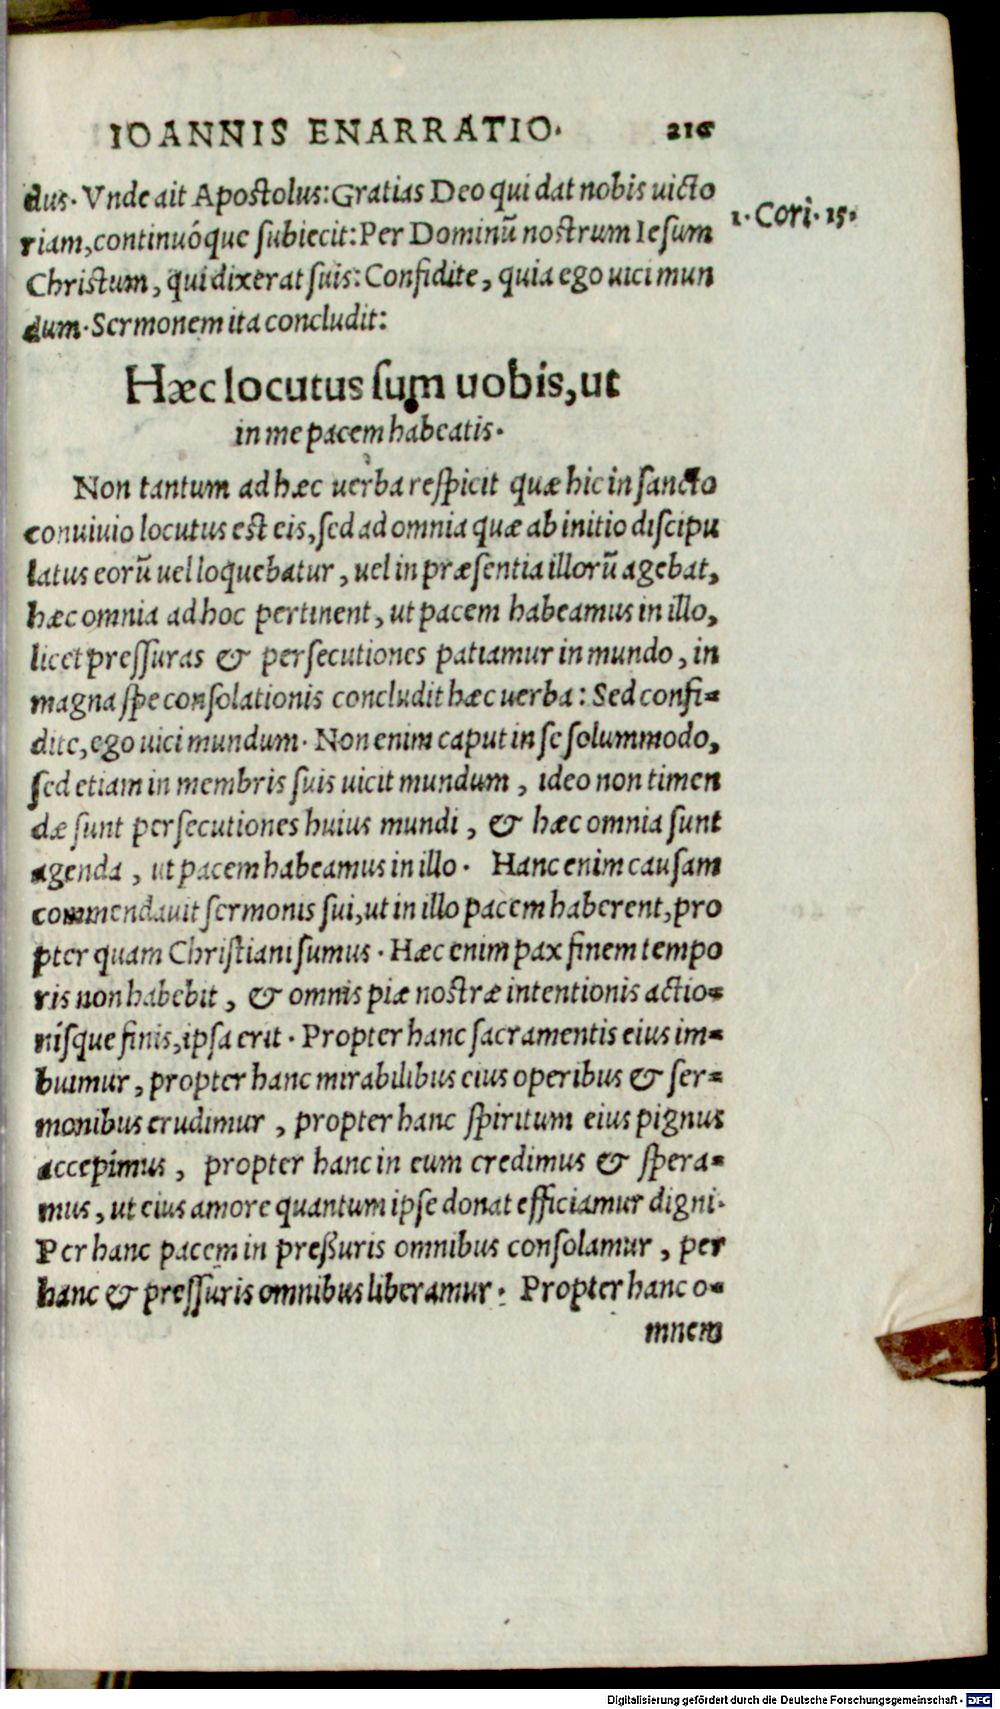 IOANNIS ENARRATIO. 216
dus. Vnde ait Apostolus: Gratias Deo qui dat nobis uicto
riam, continuóque subiecit: Per Dominũ nostrum Iesum
1. Cori. 15.
Christum, qui dixerat suis: Confidite, quia ego uici mun
dum. Sermonem ita concludit:
Hæc locutus sum uobis, ut
in me pacem habeatis.
Non tantum ad hæc uerba respicit quæ hic in sancto
conuiuio locutus est eis, sed ad omnia quæ ab initio discipu
latus eorũ uel loquebatur, uel in præsentia illorũ agebat,
hæc omnia ad hoc pertinent, ut pacem habeamus in illo,
licet pressuras & persecutiones patiamur in mundo, in
magna spe consolationis concludit hæc uerba: Sed confi-
dite, ego uici mundum. Non enim caput in se solummodo,
sed etiam in membris suis uicit mundum, ideo non timen
dæ sunt persecutiones huius mundi, & hæc omnia sunt
agenda, ut pacem habeamus in illo. Hanc enim causam
commendauit sermonis sui, ut in illo pacem haberent, pro
pter quam Christiani sumus. Hæc enim pax finem tempo
ris non habebit, & omnis piæ nostræ intentionis actio-
nísque finis, ipsa erit. Propter hanc sacramentis eius im-
buimur, propter hanc mirabilibus eius operibus & ser-
monibus erudimur, propter hanc spiritum eius pignus
accepimus, propter hanc in eum credimus & spera-
mus, ut eius amore quantum ipse donat efficiamur digni.
Per hanc pacem in preßuris omnibus consolamur, per
hanc & pressuris omnibus liberamur: Propter hanc o-
mnem
Digitalisierung gefördert durch die Deutsche Forschungsgemeinschaft - DFG